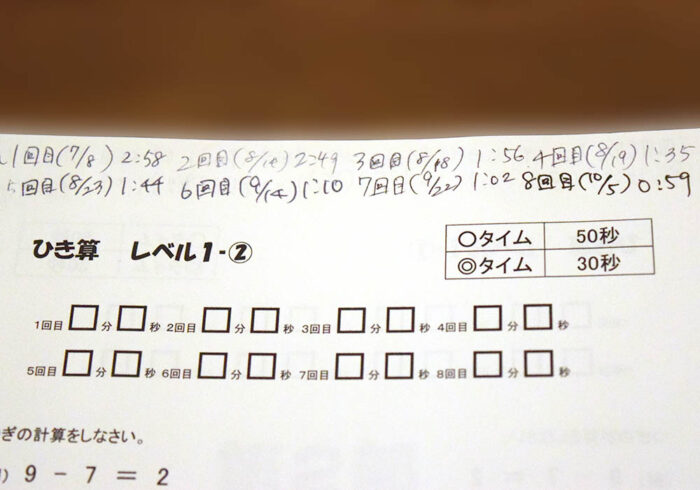 1回目(7/8) 2:58 2回目(8/14) 2:49 3回目(8/18) 1:56 4回目(8/19) 1:35
5回目(8/23) 1:44 6回目(9/14) 1:10 7回目(9/22) 1:02 8回目(10/5) 0:59
ひき算 レベル1-②
○タイム 50秒
◎タイム 30秒
1回目 □分□秒 2回目 □分□秒 3回目 □分□秒 4回目 □分□秒
5回目 □分□秒 6回目 □分□秒 7回目 □分□秒 8回目 □分□秒
ぎの計算をしなさい。
) 9 - 7 = 2